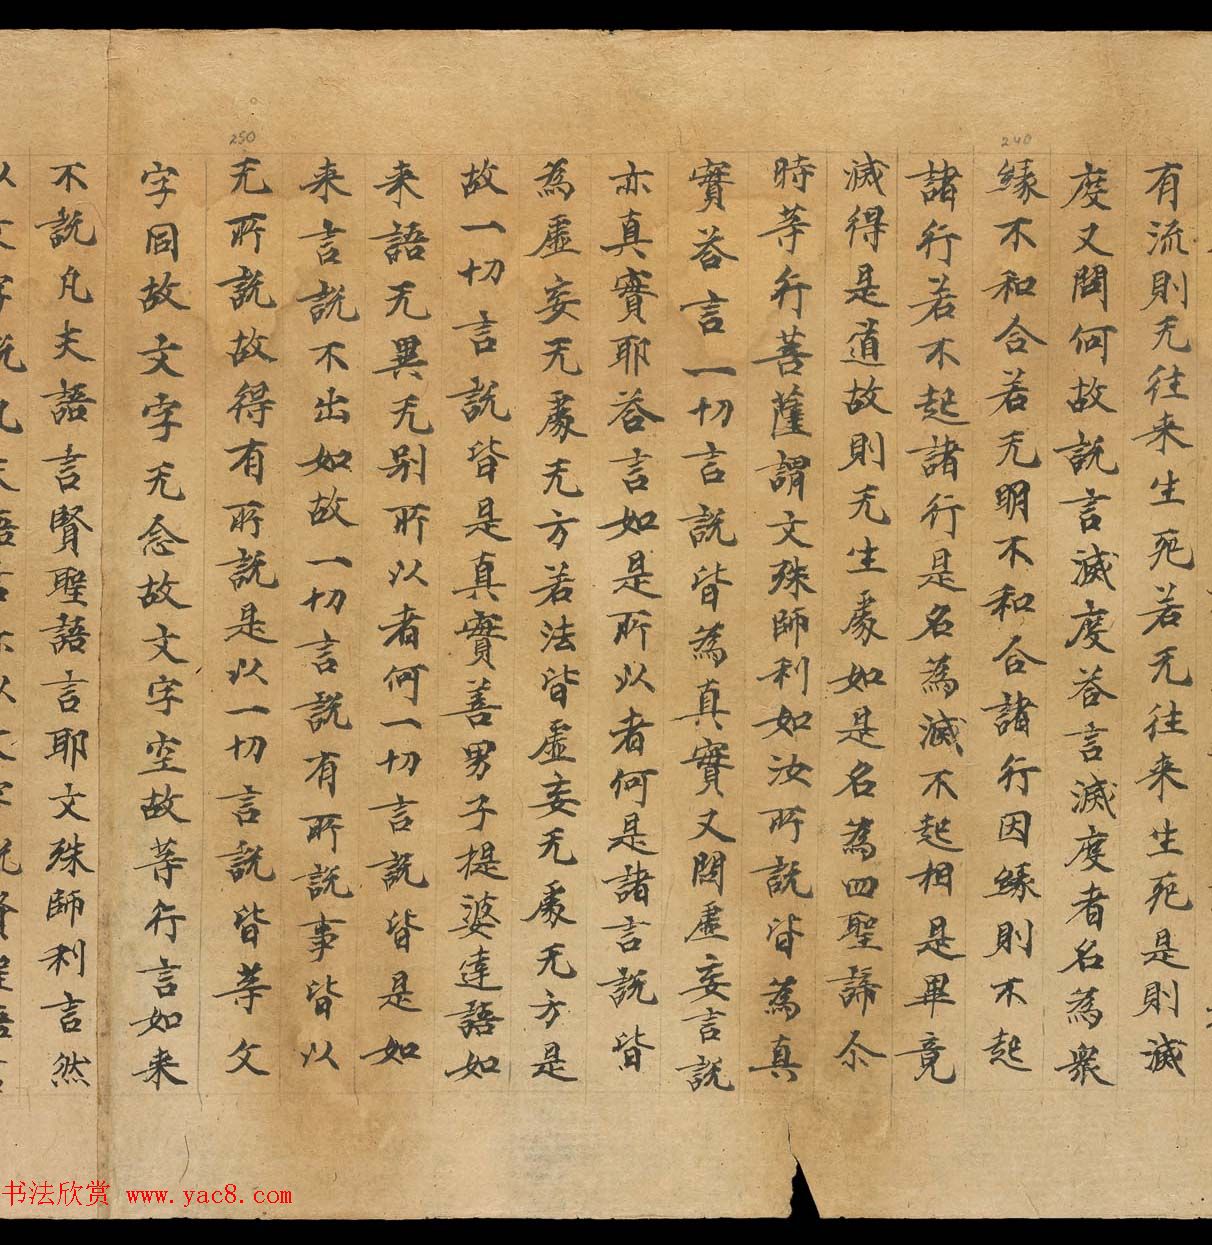 240
250
有流則无往来生死若无往来生死是則滅
度又問何故說言滅度荅言滅度者名為衆
縁不和合若无明不和合諸行因縁則不起
諸行若不起諸行是名為滅不起相是畢竟
滅得是道故則无生處如是名為四聖諦尒
時等行菩薩謂文殊師利如汝所說皆為真
實荅言一切言說皆為真實又問虛妄言說
亦真實耶荅言如是所以者何是諸言說皆
為虛妄无處无方若法皆虛妄无處无方是
故一切言說皆是真實善男子提婆達語如
来語无異无别所以者何一切言說皆是如
来言說不出如故一切言說有所說事皆以
无所說故得有所說是以一切言說皆等文
字同故文字无念故文字空故等行言如来
不說凡夫語言賢聖語言耶文殊師利言然
以文字說凡夫語言亦以文字說賢聖語言
书法欣赏 www.yac8.com